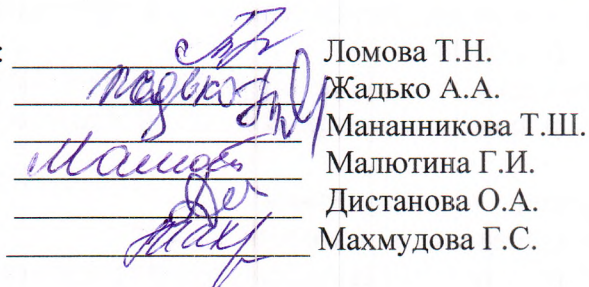 : Ломова Т.Н.
Жадько А.А.
Мананникова Т.Ш.
Малютина Г.И.
Дистанова О.А.
Махмудова Г.С.